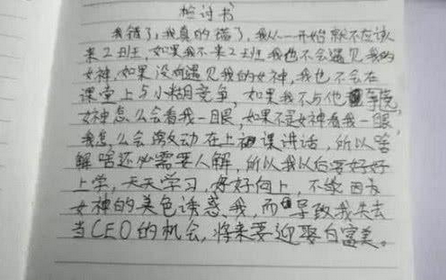 检讨书
我错了,我真的错了,我从一开始就不应该
来2班,如果我不来2班我也不会遇见我的
女神,如果没有遇见我的女神,我也不会在
课堂上与小胡竞争,如果我不与他争
女神怎么会看我一眼,如果不是女神看我一眼
我怎么会激动在上课讲话,所以
解啥还必需要人解,所以我以后要好好
上学,天天学习,好好向上,不能因为
女神的美色诱惑我,而导致我失去
当CEO的机会,将来要迎娶白富美。